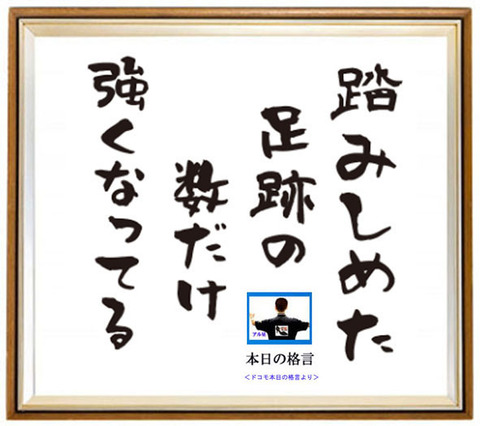 踏みしめた
足跡の
数だけ
強くなってる
アル坊
本日の格言
<ドコモ本日の格言より>